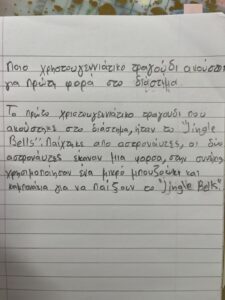 Ποιο χρηστουγεννιάτικο τραγούδι ακούστηκε
για πρώτη φορά στο διάστημα
Το πρώτο χριστουγεννιάτικο τραγουδι που
ακούστηκε στο διάστημα, ήταν το "Jingle
Bells". Παίχτηκε απο αστρονάυτες, οι δύο
αστρονάυτες έκαναν μια φαρσα, στην συνέχεια
χρησιμοποίησαν ένα μικρό και
καμπανάκια για να παίξουν το "Jingle Bells".